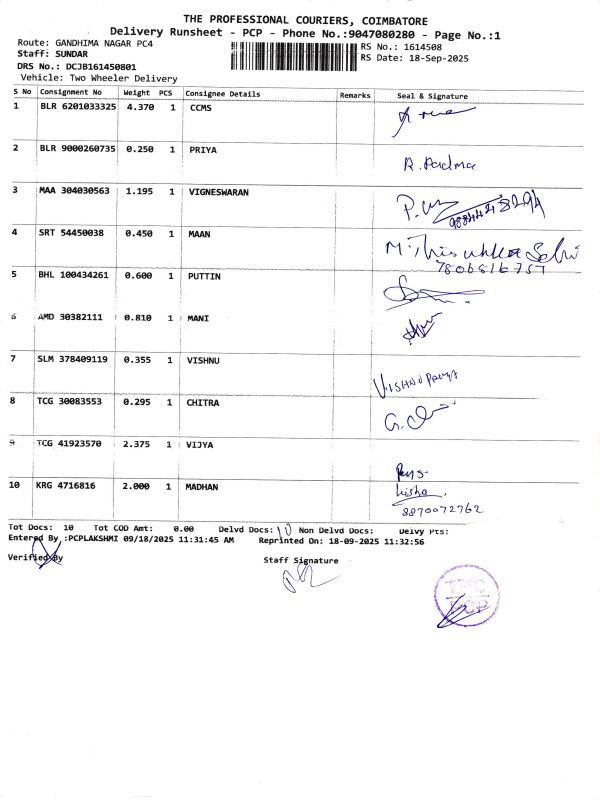 THE PROFESSIONAL COURIERS, COIMBATORE
Delivery Runsheet - PCP - Phone No.:9047080280 - Page No.:1
Route: GANDHIMA NAGAR PC4
RS No.: 1614508
Staff: SUNDAR
RS Date: 18-Sep-2025
DRS No.: DCJB161450801
Vehicle: Two Wheeler Delivery
S No Consignment No Weight PCS Consignee Details Remarks Seal & Signature
1 BLR 6201033325 4.370 1 CCMS
2 BLR 9000260735 0.250 1 PRIYA R. Padma
3 MAA 304030563 1.195 1 VIGNESWARAN
4 SRT 54450038 0.450 1 MAAN
5 BHL 100434261 0.600 1 PUTTIN
6 AMD 30382111 0.810 1 MANI
7 SLM 378409119 0.355 1 VISHNU VISHNU PRIYA
8 TCG 30083553 0.295 1 CHITRA
9 TCG 41923570 2.375 1 VIJYA
10 KRG 4716816 2.000 1 MADHAN
8870072762
Tot Docs: 10 Tot COD Amt: 0.00 Delvd Docs: 10 Non Delvd Docs: Delvy Pts:
Entered By :PCPLAKSHMI 09/18/2025 11:31:45 AM Reprinted On: 18-09-2025 11:32:56
Verified By
Staff Signature